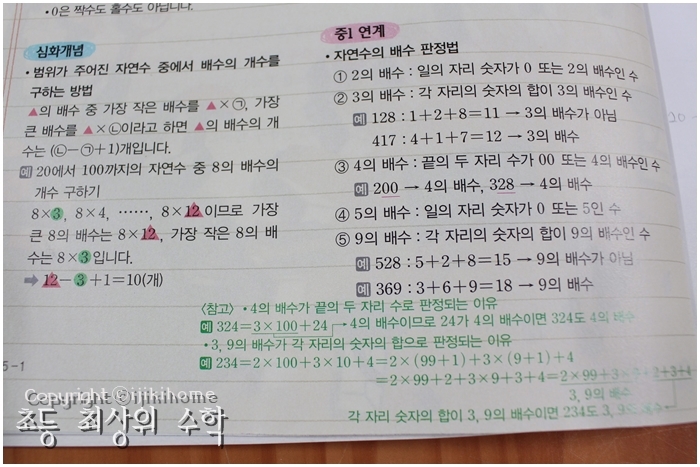 • 0은 짝수도 홀수도 아닙니다.
심화개념
• 범위가 주어진 자연수 중에서 배수의 개수를
구하는 방법
▲의 배수 중 가장 작은 배수를 ▲×㉠, 가장
큰 배수를 ▲×㉡이라고 하면 ▲의 배수의 개
수는 (㉡-㉠+1)개입니다.
예 20에서 100까지의 자연수 중 8의 배수의
개수 구하기
8×3, 8×4, ……, 8×12이므로 가장
큰 8의 배수는 8×12, 가장 작은 8의 배
수는 8×3입니다.
➡ 12-3+1=10(개)
5-1
중1 연계
• 자연수의 배수 판정법
① 2의 배수 : 일의 자리 숫자가 0 또는 2의 배수인 수
② 3의 배수 : 각 자리의 숫자의 합이 3의 배수인 수
예 128 : 1+2+8=11 → 3의 배수가 아님
417 : 4+1+7=12 → 3의 배수
③ 4의 배수 : 끝의 두 자리 수가 00 또는 4의 배수인 수
예 200 → 4의 배수, 328 → 4의 배수
④ 5의 배수 : 일의 자리 숫자가 0 또는 5인 수
⑤ 9의 배수 : 각 자리의 숫자의 합이 9의 배수인 수
예 528 : 5+2+8=15 → 9의 배수가 아님
예 369 : 3+6+9=18 → 9의 배수
〈참고〉 • 4의 배수가 끝의 두 자리 수로 판정되는 이유
예 324=3×100+24 → 4의 배수이므로 24가 4의 배수이면 324도 4의 배수
• 3, 9의 배수가 각 자리의 숫자의 합으로 판정되는 이유
예 234=2×100+3×10+4=2×(99+1)+3×(9+1)+4
=2×99+2+3×9+3+4=2×99+3×9+2+3+4
3, 9의 배수
각 자리 숫자의 합이 3, 9의 배수이면 234도 3, 9의 배수
Copyright ⓒijikihome
초등 최상위 수학